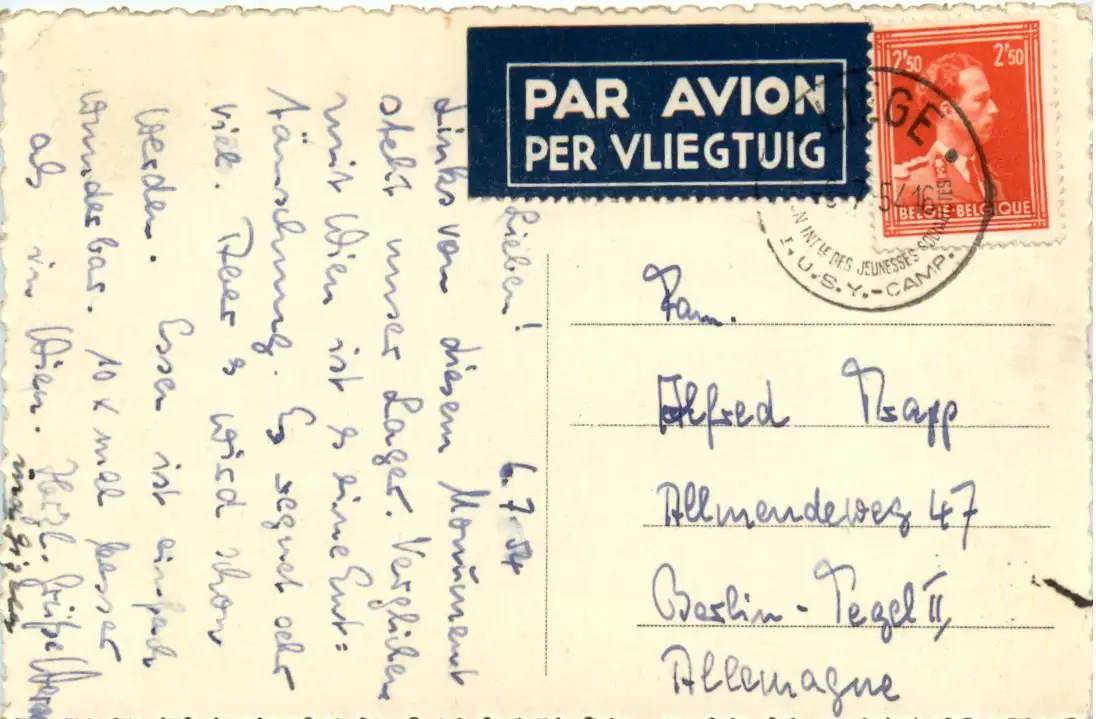 PAR AVION
PER VLIEGTUIG
2F50 2F50
BELGIE-BELGIQUE
LIEGE
-6-7-54 16
INTLE DES JEUNESSES
I.U.S.Y.-CAMP.
Lieben! 6.7.54
Links von diesem Monument
steht unser Lager. Verglichen
mit Wien ist es eine Ent=
täuschung. Es regnet sehr
viel. Aber es wird schon
werden. Essen ist einfach
wunderbar. 10 x mal besser
als in Wien. Herzl. Grüße
Fam.
Alfred Trapp
Allmendeweg 47
Berlin - Tegel II,
Allemagne